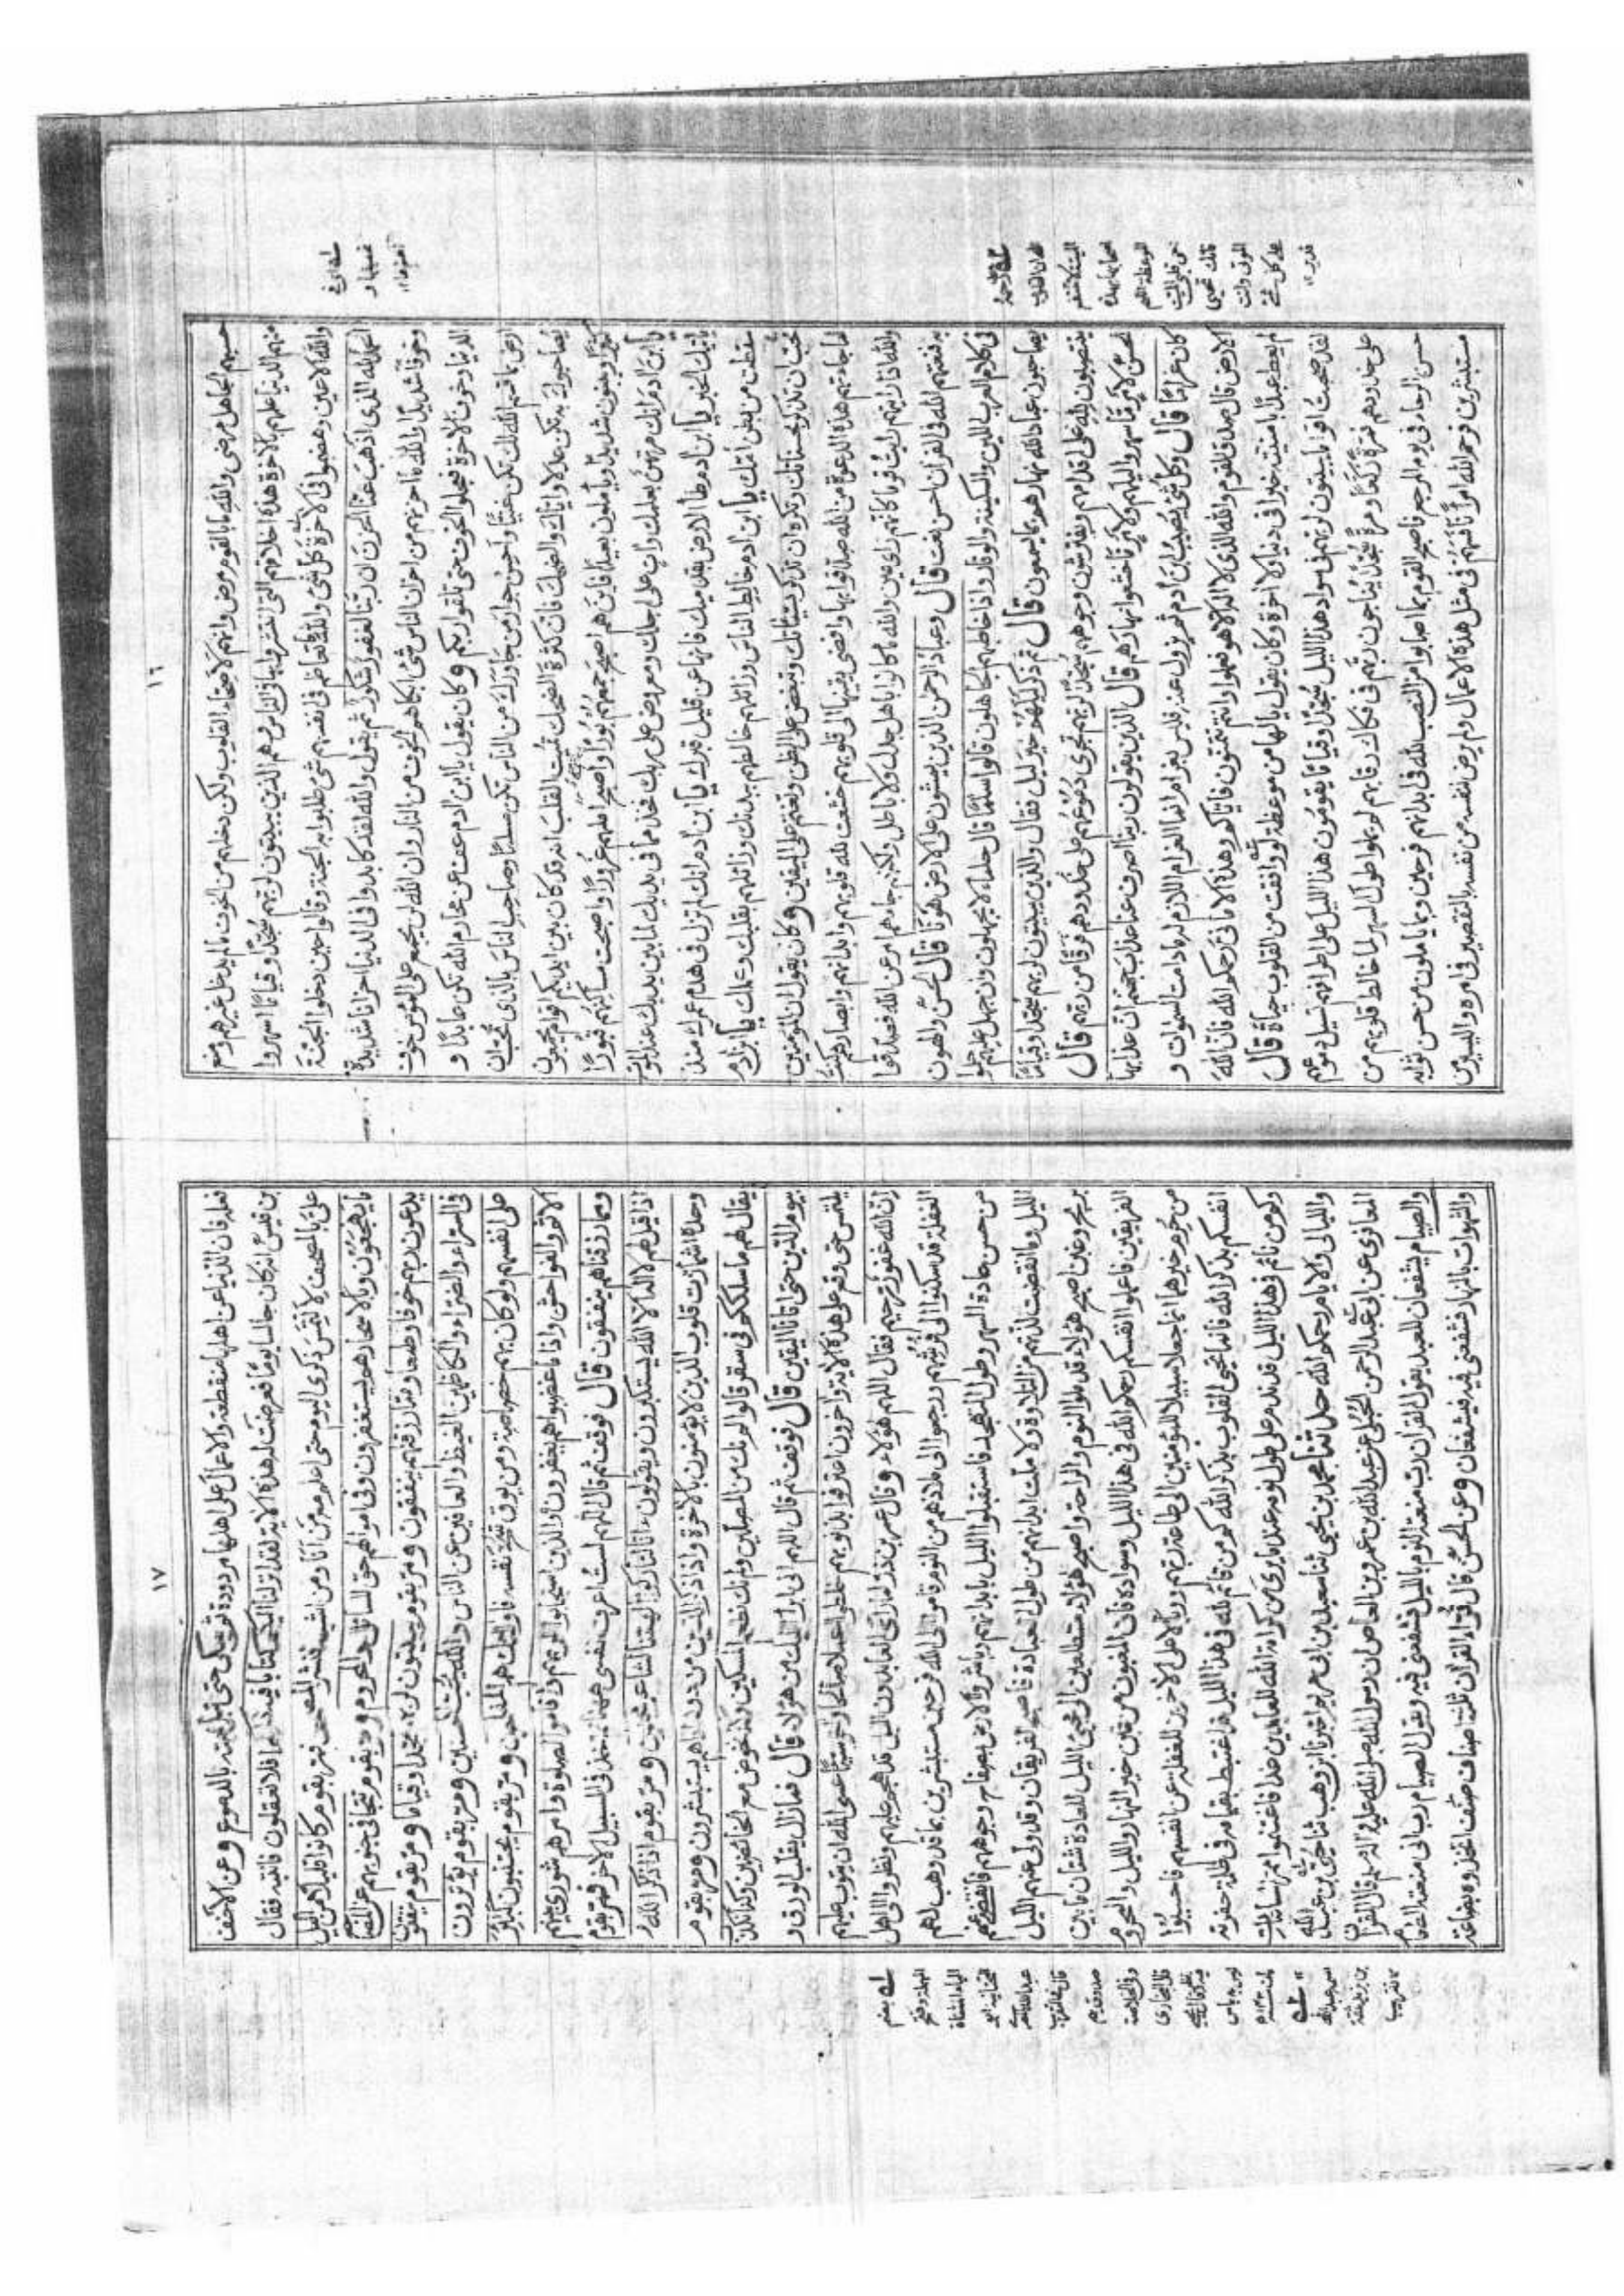 ١٦
حسبهم الجاهل مرضى والله ما بالقوم من مرض وانهم لاصحاء القلوب ولكن دخلهم من الخوف ما لم يدخل غيرهم ومنع
منهم الدنيا علمهم بالاخرة هذه اخلاقهم التى انتشروا بها فى الناس وهم الذين يبيتون لربهم سُجّدا وقياما اسهروا
والله الاعين وهضموا فى الاخرة كل شئ والله ما تعاظم فى انفسهم شئ طلبوا به الجنة وقالوا حين دخلوا الجنة
الحمد لله الذى اذهب عنا الحزن ان ربنا لغفور شكور ثم يقول والله لقد كابدوا فى الدنيا احزانا شديدة
وخوفا شديدًا والله ما احزنهم من احزان الناس شئ ابكاهم الخوف من النار وان الله لن يجمع على المؤمن خوف
الدنيا وخوف الاخرة فعجلوا الخوف حتى تلقوا ربكم وكان يقول يا ابن ادم عف عن محارم الله تكن عابدًا و
ارض بما قسم الله لك تكن غنيًّا واحسن جوار من جاورك من الناس تكن مسلمًا وصاحب الناس بالذى تحب ان
يصاحبوك به تكن عدلا واياك والضحك فان كثرة الضحك تميت القلب انه قد كان بين ايديكم اقوام يجمعون
كثيرًا ويبنون شديدًا ويأملون بعيدًا فاين هم اصبح جمعهم بُورًا واصبح املهم غرورًا واصبحت مساكنهم قبورًا
يا ابن ادم انك مرتهن بعملك واٰت على اجلك ومعروض على ربك فخذ مما فى يديك لما بين يديك عند الموت
يأتيك الخبر يا ابن ادم طأ الارض بقدميك فانها عن قليل قبرك يا ابن ادم انك لم تزل فى هدم عمرك منذ
سقطت من بطن امّك يا ابن ادم خالط الناس وزائلهم خالطهم ببدنك وزائلهم بقلبك وعملك يا ابن ادم
تحب ان تذكر بحسناتك وتكره ان تذكر بسيئاتك وتبغض على الظن وتقيم على اليقين وكان يقول ان المؤمنين
لما جاءتهم هذه الدعوة من الله صدقوا بها وافضى يقينها الى قلوبهم خشعت لله قلوبهم وابدانهم وابصارهم كنت
والله اذا رايتهم رايت قوما كانهم راى عين والله ما كانوا باهل جدل ولا باطل ولكنهم جاءهم امر عن الله فصدقوا
به فنعتهم الله فى القران احسن نعت قال وعباد الرحمن الذين يمشون على الارض هونًا قال الحسن والهون
فى كلام العرب اللين والسكينة والوقار واذا خاطبهم الجاهلون قالوا سلامًا قال حلماء لا يجهلون وان جهل عليهم حلموا
يصاحبون عباد الله نهارهم بما يسمعون قال ثم ذكر ليلهم خير ليل فقال والذين يبيتون لربهم سُجدا وقياما
ينتصبون لله على اقدامهم ويفترشون وجوههم سُجّدًا لربهم تجرى دموعهم على خدودهم فرقًا من ربهم قال
الحسن لامر ما سهروا ليلهم ولامر ما خشعوا نهارهم قال الذين يقولون ربنا اصرف عنا عذاب جهنم ان عذابها
كان غرامًا قال وكل شئ يُصيب ابن ادم ثم يزول عنه فليس بغرام انما الغرام اللازم له ما دامت السمٰوات و
الارض قال صدق القوم والله الذى لا اله الا هو فعملوا وانتم تتمنون فاياكم وهذه الامانى رحمكم الله فان الله
لم يعط عبدًا بامنيته خيرا فى دنيا ولا اخرة وكان يقول يا لها من موعظة لو وافقت من القلوب حياة قال
لقد صحبت اقواما يبيتون لربهم فى سواد هذا الليل سُجّدًا وقيامًا يقومون هذا الليل على اطرافهم تسيل دموعهم
على خدودهم فمرة رُكّعًا ومرة سُجّدًا يناجون ربهم فى فكاك رقابهم لم يملوا طول السهر لما خالط قلوبهم من
حسن الرجاء فى يوم المرجع فاصبح القوم بما اصابوا من النصب لله فى ابدانهم فرحين وبما ياملون من حسن ثوابه
مستبشرين فرحم الله امرأً نافسهم فى مثل هذه الاعمال ولم يرض نفسه من نفسه بالتقصير فى امره واليسير من
١٧
فعله فان الدنيا عن اهلها منقطعة والاعمال على اهلها مردودة ثم يبكى حتى تبل لحيته بالدموع وعن الاحنف
بن قيس انه كان جالسا يومًا فعرضت له هذه الاية لقد انزلنا اليكم كتابا فيه ذكركم افلا تعقلون فانتبه فقال
علىّ بالمصحف لالتمس ذكرى اليوم حتى اعلم مع من انا ومن اشبه فنشر المصحف فمر بقوم كانوا قليلا من الليل
ما يهجعون وبالاسحار هم يستغفرون وفى اموالهم حق للسائل والمحروم ومر بقوم تتجافى جنوبهم عن المضاجع
يدعون ربهم خوفا وطمعا ومما رزقنهم ينفقون ومر بقوم يبيتون لربهم سجدا وقياما ومر بقوم ينفقون
فى السراء والضراء والكاظمين الغيظ والعافين عن الناس والله يحب المحسنين ومر بقوم يؤثرون
على انفسهم ولو كان بهم خصاصة ومن يوق شح نفسه فاولئك هم المفلحون ومر بقوم يجتنبون كبائر
الاثم والفواحش واذا ما غضبوا هم يغفرون والذين استجابوا لربهم واقاموا الصلوة وامرهم شورى بينهم
ومما رزقناهم ينفقون قال فوقف ثم قال اللهم لست اعرف نفسى ههنا ثم اخذ فى السبيل الاخر فمر بقوم
اذا قيل لهم لا اله الا الله يستكبرون ويقولون ءانا لتاركوا اٰلهتنا لشاعر مجنون ومر بقوم اذا ذكر الله
وحده اشمأزت قلوب الذين لا يؤمنون بالاخرة واذا ذكر الذين من دونه اذا هم يستبشرون ومر بقوم
يقال لهم ما سلككم فى سقر قالوا لم نك من المصلين ولم نك نطعم المسكين وكنا نخوض مع الخائضين وكنا نكذب
بيوم الدين حتى اتانا اليقين قال فوقف ثم قال اللهم انى ابرأ اليك من هؤلاء قال فما زال يقلب الورق و
يلتمس حتى وقع على هذه الاية واخرون اعترفوا بذنوبهم خلطوا عملا صالحا واٰخر سيئا عسى الله ان يتوب عليهم
ان الله غفور رحيم فقال اللهم هؤلاء وقال عمر بن ذر لما راى العابدون الليل قد هجم عليهم ونظروا الى اهل
الغفلة قد سكنوا الى فرشهم ورجعوا الى ملاذهم من النوم قاموا الى الله فرحين مستبشرين بما قد وهب لهم
من حسن عادة السهر وطول التهجد فاستقبلوا الليل بابدانهم وباشروا الارض بصفاح وجوههم فانقضى عنهم
الليل وما انقضت لذتهم من التلاوة ولا ملت ابدانهم من طول العبادة فاصبح الفريقان وقد ولى عنهم الليل
بربح وغبن اصبح هؤلاء قد ملوا النوم والراحة واصبح هؤلاء متطلعين الى مجئ الليل للعادة شتان ما بين
الفريقين فاعملوا لانفسكم رحمكم الله فى هذا الليل وسواده فان المغبون من غبن خير النهار والليل والمحروم
من حُرم خيرهما انما جعلا سبيلا للمؤمنين الى طاعة ربهم ووبالا على الاخرين للغفلة عن انفسهم فاحيوا لله
انفسكم بذكر الله فانما تحيى القلوب بذكر الله كم من قائم لله فى هذا الليل قد اغتبط بقيامه فى ظلمة حفرته
وكم من نائم فى هذا الليل قد ندم على طول نومه عند ما يرى من كرامة الله للعابدين غدا فاغتنموا ممر الساعات
والليالى والايام رحمكم الله حدثنا محمد بن يحيى ثنا سعيد بن ابى مريم اخبرنا ابن وهب ثنا حيى بن عبد الله
المعافرى عن ابى عبد الرحمن الحبلى عن عبد الله بن عمرو بن العاص ان رسول الله صلى الله عليه وسلم قال القران
والصيام يشفعان للعبد يقول القران رب منعته النوم بالليل فشفعنى فيه ويقول الصيام رب انى منعته الطعام
والشهوات بالنهار فشفعنى فيه فيشفعان وعن الحسن قال قراء القران ثلثة اصناف صنف اتخذوه بضاعة